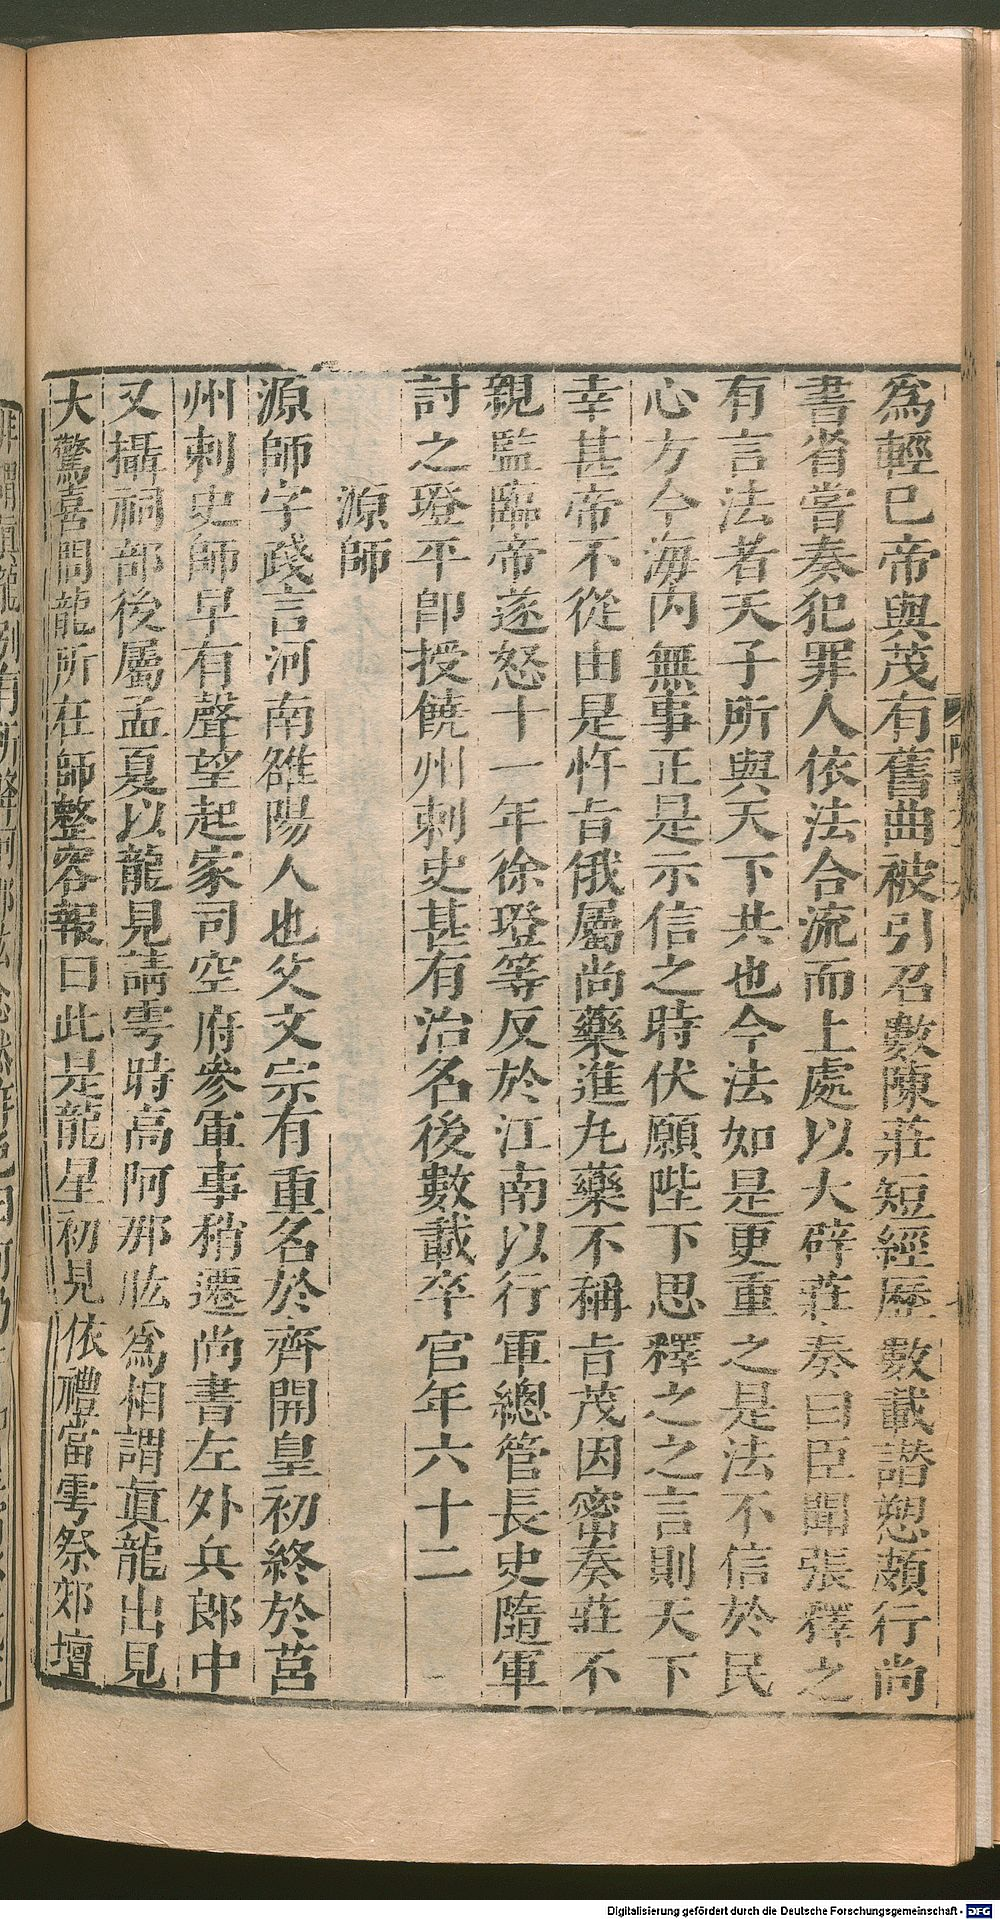 爲輕已帝與茂有舊曲被引召數陳莊短經歷數載譖愬頗行尚
書省嘗奏犯罪人依法合流而上處以大辟莊奏曰臣聞張釋之
有言法者天子所與天下共也今法如是更重之是法不信於民
心方今海內無事正是示信之時伏願陛下思釋之之言則天下
幸甚帝不從由是忤旨俄屬尚藥進丸藥不稱旨茂因密奏莊不
親監臨帝遂怒十一年徐璒等反於江南以行軍總管長史隨軍
討之璒平卽授饒州刺史甚有治名後數載卒官年六十二
源師
源師字踐言河南雒陽人也父文宗有重名於齊開皇初終於莒
州刺史師早有聲望起家司空府參軍事稍遷尚書左外兵郎中
又攝祠部後屬孟夏以龍見請雩時高阿那肱爲相謂眞龍出見
大驚喜問龍所在師整容報曰此是龍星初見依禮當雩祭郊壇
Digitalisierung gefördert durch die Deutsche Forschungsgemeinschaft - DFG